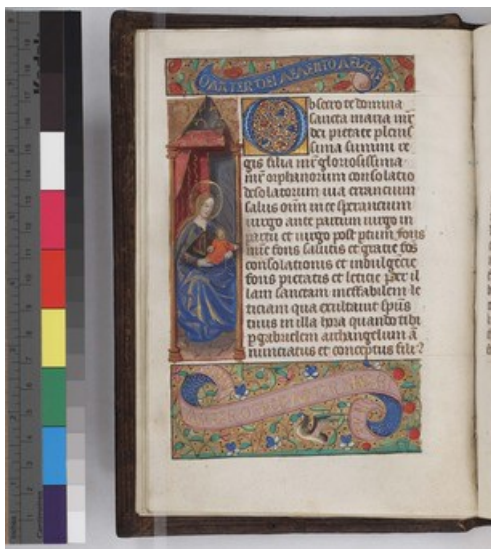 O MATER DEI MEMENTO MEI
Obsecro te domina
sancta maria mr̄
dei pietate plenis
sima summi re
gis filia mr̄ gloriosissima
mr̄ orphanorum consolacio
desolatorum uia errancium
salus oīm in te sperancium
uirgo ante partum uirgo in
partu et uirgo post ptum fons
mīe fons salutis et gracie fōs
consolationis et indulgēcie
fons pietatis et leticie Per il
lam sanctam ineffabilem le
ticiam qua exultauit spūs
tuus in illa hora quando tibi
p gabrielem archangelum ā
nunciatus et conceptus filiꝰ